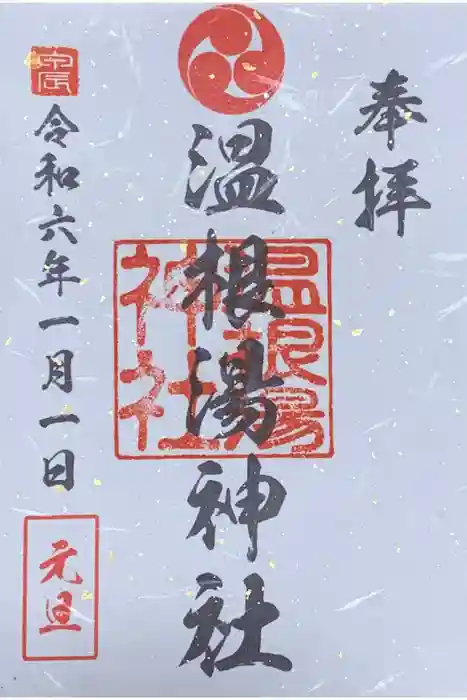 奉拝
温根湯神社
温根湯神社
甲辰
令和六年一月一日
元旦